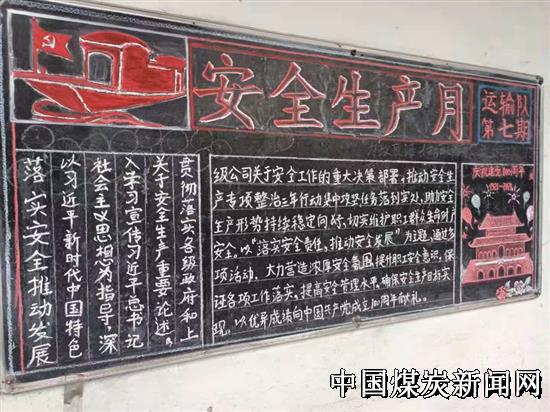 安全生产月
运输队
第七期
落实安全推动发展
以习近平新时代中国特色
社会主义思想为指导，深
入学习宣传习近平总书记
关于安全生产重要论述。
贯彻落实各级政府和上
级公司关于安全工作的重大决策部署，推动安全生
产专项整治三年行动集中攻坚任务落到实处，助力安全
生产形势持续稳定向好，切实维护职工群众生命财产
安全。以“落实安全责任、推动安全发展”为主题，通过多
项活动、大力营造浓厚安全氛围，提升职工安全意识，保
证各项工作落实、提高安全管理水平，确保安全生产目标实
现，以优异成绩向中国共产党成立100周年献礼。
庆祝建党100周年
1921-2021
中国煤炭新闻网